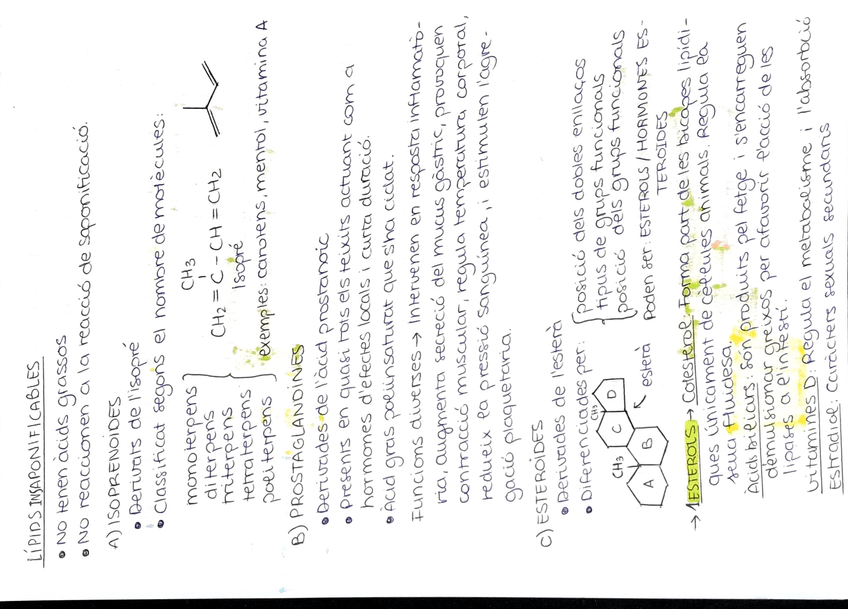 LÍPIDS INSAPONIFICABLES
• No tenen àcids grassos
• No reaccionen a la reacció de saponificació.
A) ISOPRENOIDES
• Derivats de l'isoprè
• Classificat segons el nombre de molècules:
monoterpens
diterpens
triterpens
tetraterpens
politerpens
CH3
CH2 = C - CH = CH2
Isoprè
exemples: carotens, mentol, vitamina A
B) PROSTAGLANDINES
• Derivades de l'àcid prostanoic
• Presents en quasi tots els teixits actuant com a
hormones d'efectes locals i curta duració.
• Àcid gras poliinsaturat que s'ha ciclat.
Funcions diverses → Intervenen en resposta inflamatò-
ria, augmenta secreció del mucus gàstric, provoquen
contracció muscular, regula temperatura corporal,
redueix la pressió sanguínea, i estimulen l'agre-
gació plaquetària.
C) ESTEROIDES
• Derivades de l'esterà
• Diferenciades per:
posició dels dobles enllaços
tipus de grups funcionals
posició dels grups funcionals
CH3
CH3
A
B
C
D
esterà
Poden ser: ESTEROLS / HORMONES ES-
TEROIDES
→ 1 ESTEROLS → Colesterol: Forma part de les bicapes lipídi-
ques únicament de cèl·lules animals. Regula la
seua fluïdesa.
Àcids biliars: són produïts pel fetge i s'encarreguen
d'emulsionar greixos per afavorir l'acció de les
lipases a l'intestí.
Vitamines D: Regula el metabolisme i l'absorbció
Estradiol: Caràcters sexuals secundaris